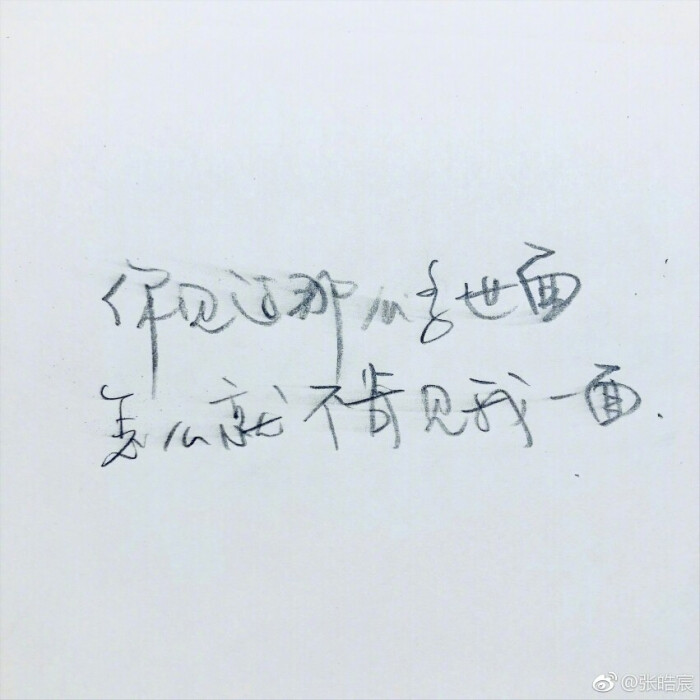 你见过那么多世面
怎么就不肯见我一面.
@张皓宸